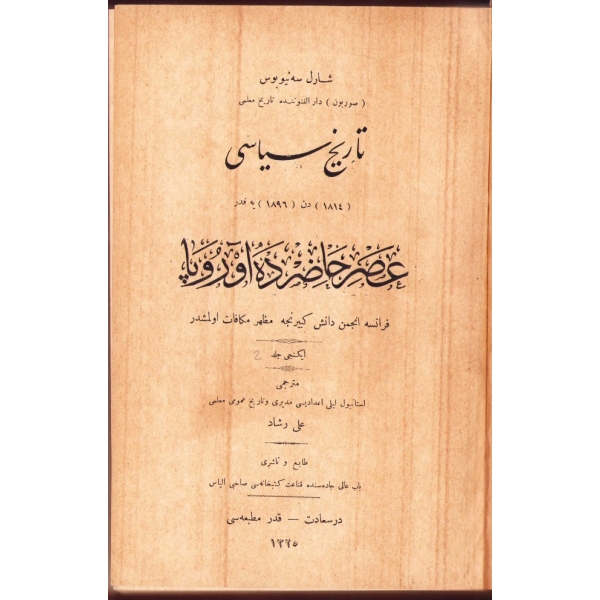 شارل سه‌نیوبوس
( سوربون ) دار الفنوننده تاریخ معلمی
تاریخ سیاسی
( ١٨١٤ ) دن ( ١٨٩٦ ) یه قدر
عصر حاضرده اوروپا
فرانسه انجمن دانش کبیرنجه مظهر مکافات اولمشدر
ایکنجی جلد 2
مترجمی
استانبول لیلی اعدادیسی مدیری و تاریخ عمومی معلمی
علی رشاد
طابع و ناشری
باب عالی جاده‌سنده قناعت کتبخانه‌سی صاحبی الیاس
درسعادت — قدر مطبعه‌سی
١٣٢٥